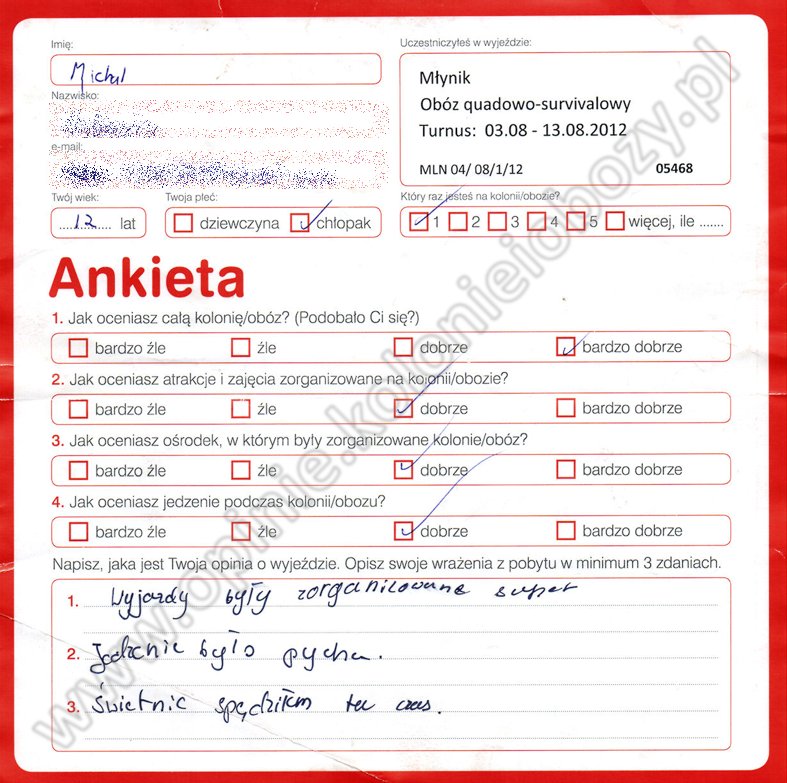 Imię:
Michał
Nazwisko:
e-mail:
Twój wiek:
....12.... lat
Twoja płeć:
dziewczyna chłopak
Uczestniczyłeś w wyjeździe:
Młynik
Obóz quadowo-survivalowy
Turnus: 03.08 - 13.08.2012
MLN 04/ 08/1/12 05468
Który raz jesteś na kolonii/obozie?
1 2 3 4 5 więcej, ile .......
Ankieta
1. Jak oceniasz całą kolonię/obóz? (Podobało Ci się?)
bardzo źle źle dobrze bardzo dobrze
2. Jak oceniasz atrakcje i zajęcia zorganizowane na kolonii/obozie?
bardzo źle źle dobrze bardzo dobrze
3. Jak oceniasz ośrodek, w którym byly zorganizowane kolonie/obóz?
bardzo źle źle dobrze bardzo dobrze
4. Jak oceniasz jedzenie podczas kolonii/obozu?
bardzo źle źle dobrze bardzo dobrze
Napisz, jaka jest Twoja opinia o wyjeździe. Opisz swoje wrażenia z pobytu w minimum 3 zdaniach.
1. Wyjazdy były zorganizowane super
2. Jedzenie było pycha.
3. Świetnie spędziłem ten czas.
www.opinie.kolonieiobozy.pl